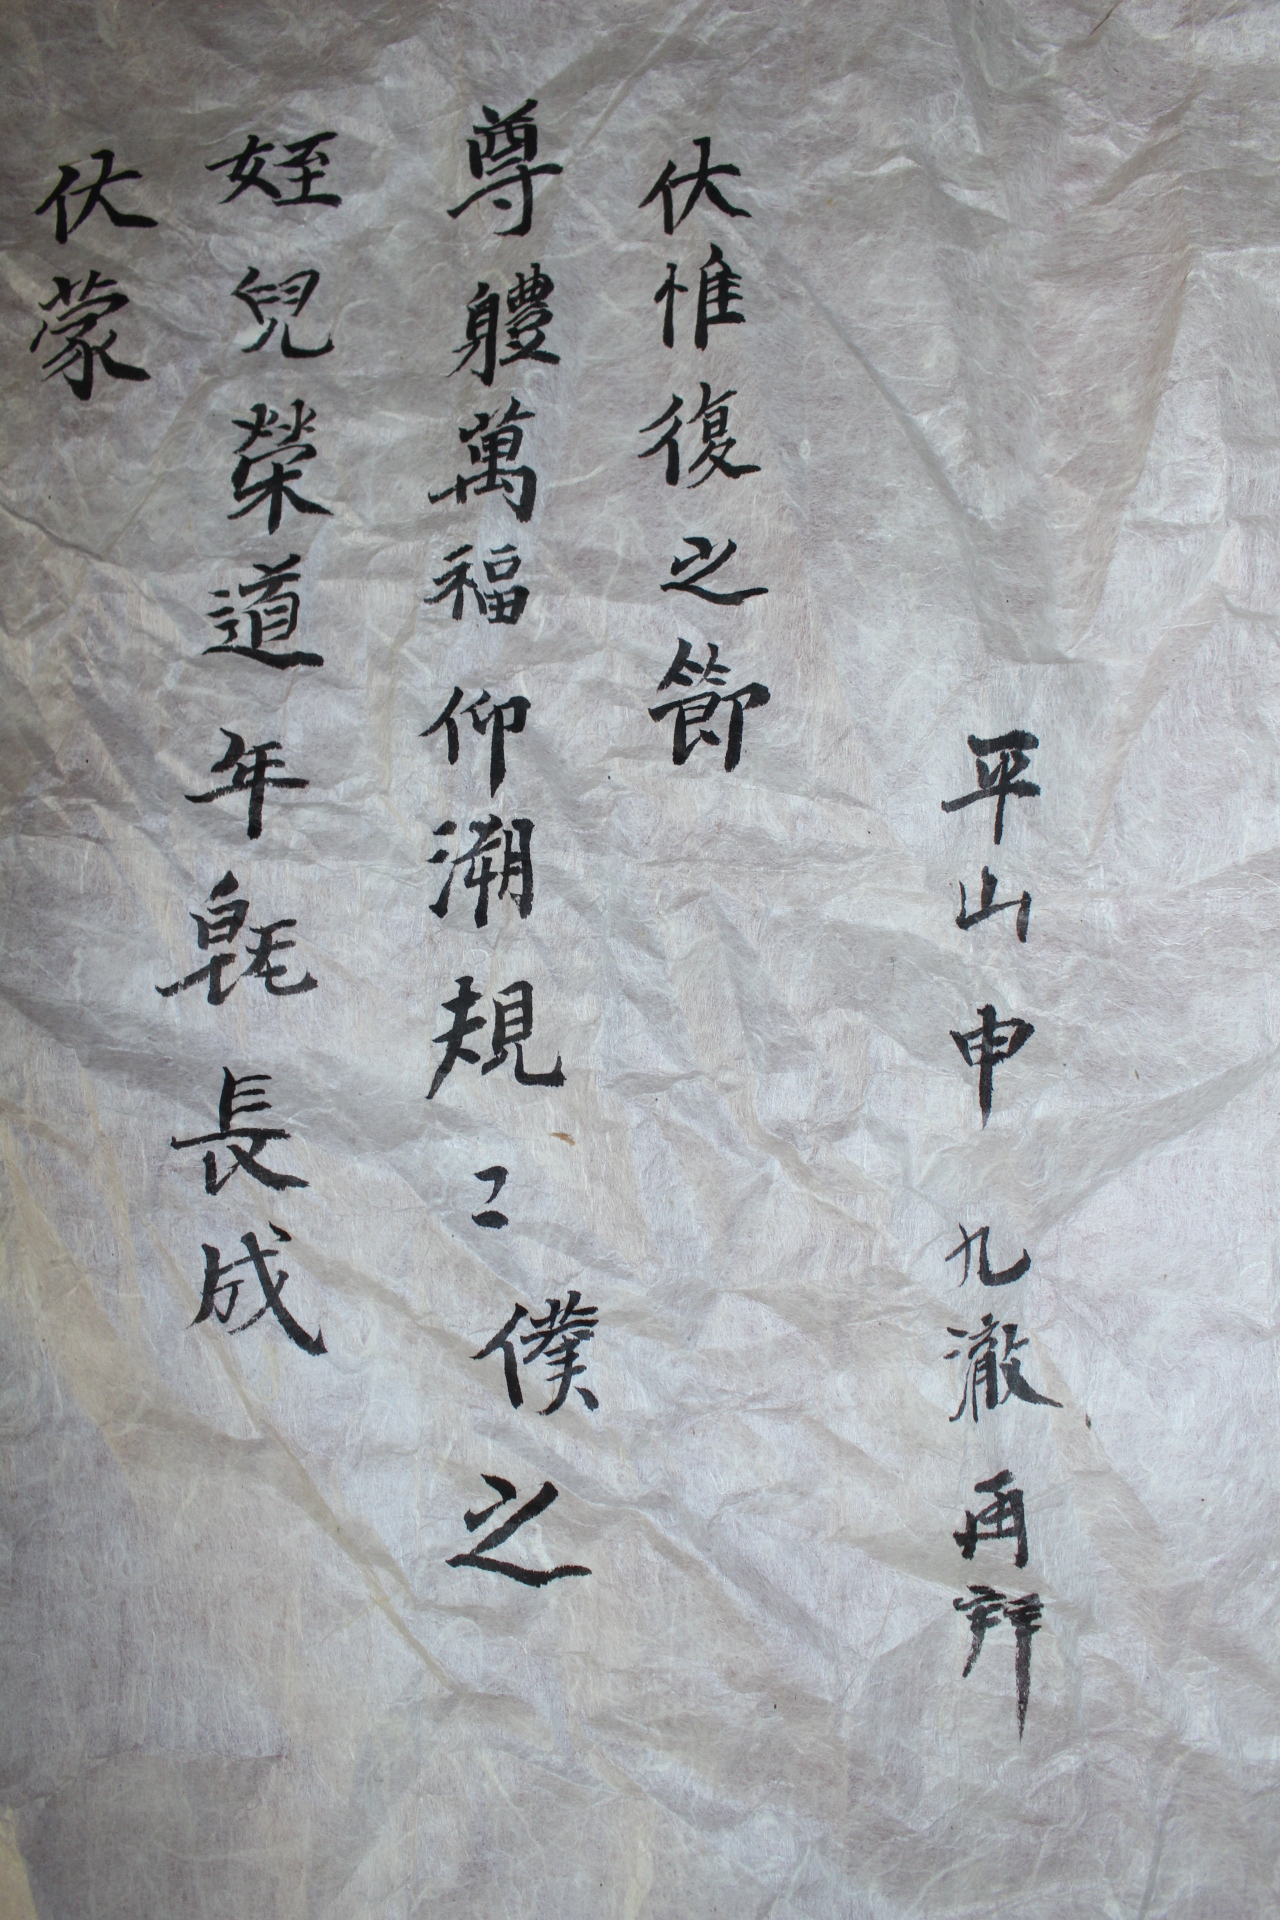 平山 申 九澈 再拜
伏惟復之節
尊軆萬福仰溯規〻僕之
姪兒榮道年旣長成
伏蒙